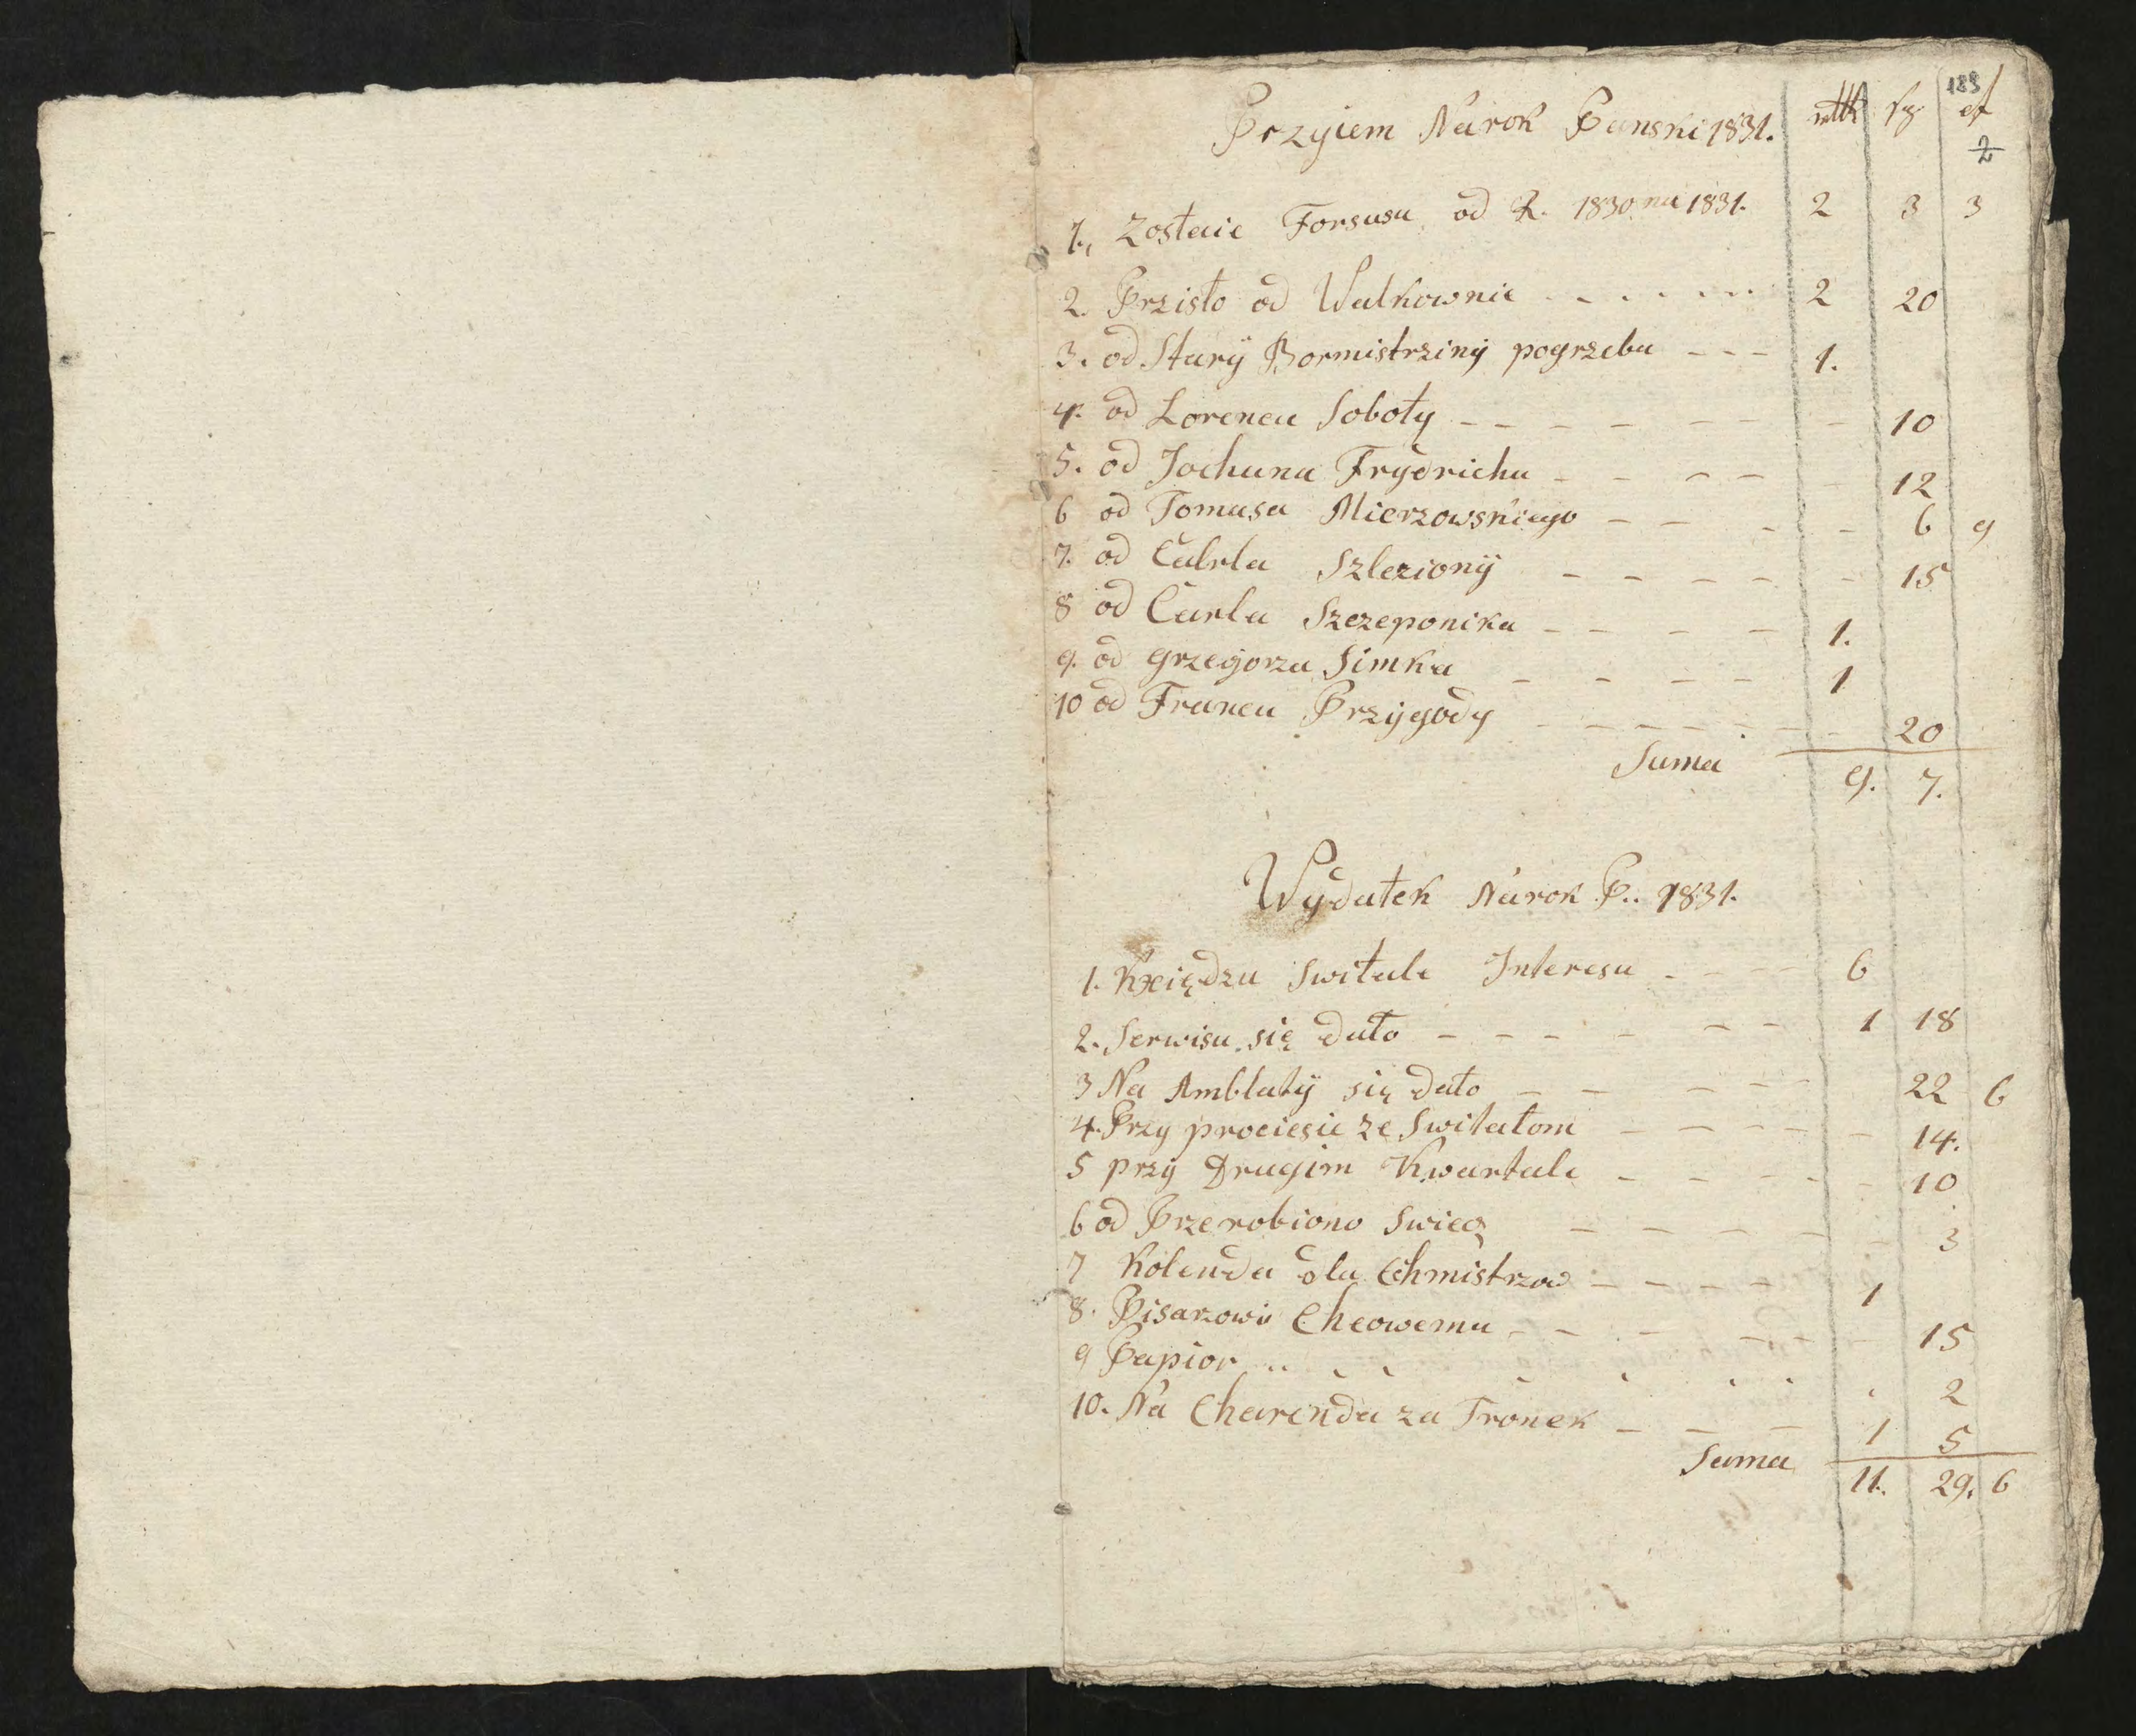 183
Przyiem Na rok Panski 1831. rtth sg df
2
1., Zostaie Forsusu od R. 1830 na 1831. 2 3 3
2. Przisło od Walkownie 2 20
3. od Stary Bormistrziny pogrzebu 1.
4. od Lorenca Soboty 10
5. od Jochuna Frydricha 12
6 od Tomasa Mierzowskiego 6 9
7. od Calrla Szleziony 15
8 od Carla Szczeponika 1.
9. od Grzegorza Simka 1
10 od Franca Przygody 20
Suma 9. 7.
Wydatek Na rok P.. 1831.
1. Kxiędzu Switale Interesu 6
2. Serwisu się dało 1 18
3 Na Amblaty się dało 22 6
4. Przy prociesie ze Switałom 14.
5 przy Drugim Kwartale 10
6 od Przerobiono Swiec 3
7 Kolenda dla Cchmistrzow 1
8. Pisarzowi Checowemu 15
9 Papior 2
10. Na Charenda za Tronek 1 5
Suma 11. 29. 6